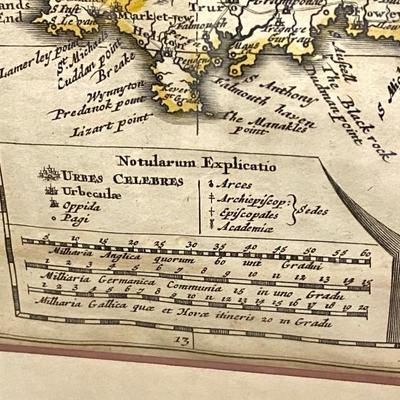 ands
End
St Ives
Market-Jew
Truro
Falmouth
Lamerley point
St Michaels
Cuddan point
Breake
Wynnyton
Predanok point
Lizart point
St Anthony
Falmouth haven
The Manakles
point
Dudman point
The Black rock
Notularum Explicatio
URBES CELEBRES
Urbeculæ
Oppida
Pagi
Arces
Archiepiscop:
Episcopales
Sedes
Academiæ
5 10 15 20 25 30 35 40 45 50 55 60
Milharia Anglica quorum 60 uni Gradui
1 2 3 4 5 6 7 8 9 10 11 12 13 14 15
Milharia Germanica Communia 15 in uno Gradu
1 2 3 4 5 6 7 8 9 10 11 12 13 14 15 16 17 18 19 20
Milharia Gallica quæ et Horæ itineris 20 in Gradu
13